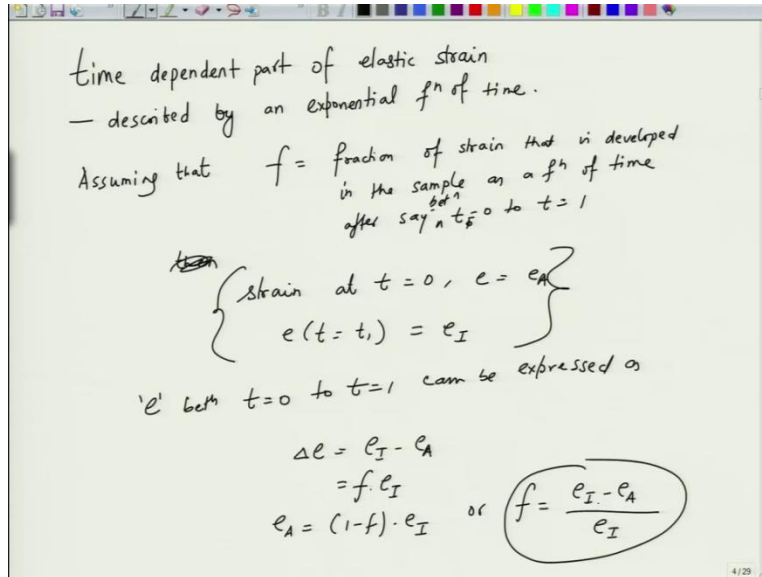 time dependent part of elastic strain
— described by an exponential fⁿ of time.
Assuming that f = fraction of strain that is developed
in the sample as a fⁿ of time
after say betⁿ t=0 to t=1
strain at t=0, e = eA
e(t=t₁) = eI
'e' betⁿ t=0 to t=1 can be expressed as
Δe = eI - eA
= f.eI
eA = (1-f).eI or f = (eI - eA)/eI
4/29